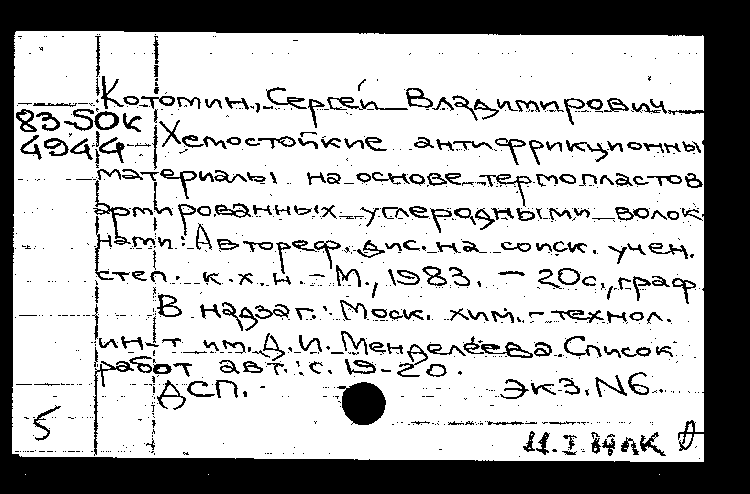 Котомин, Сергей Владимирович
83-5OK
4944
Хемостойкие антифрикционны
материалы на основе термопластов
армированных углеродными волок
нами: Автореф. дис. на соиск. учен.
степ. к.х.н. - М., 1983. - 20с., граф.
В надзаг.: Моск. хим.-технол.
ин-т им. Д. И. Менделеева. Список
работ авт.: с. 19-20.
ДСП. экз. N6.
5
11.I.84